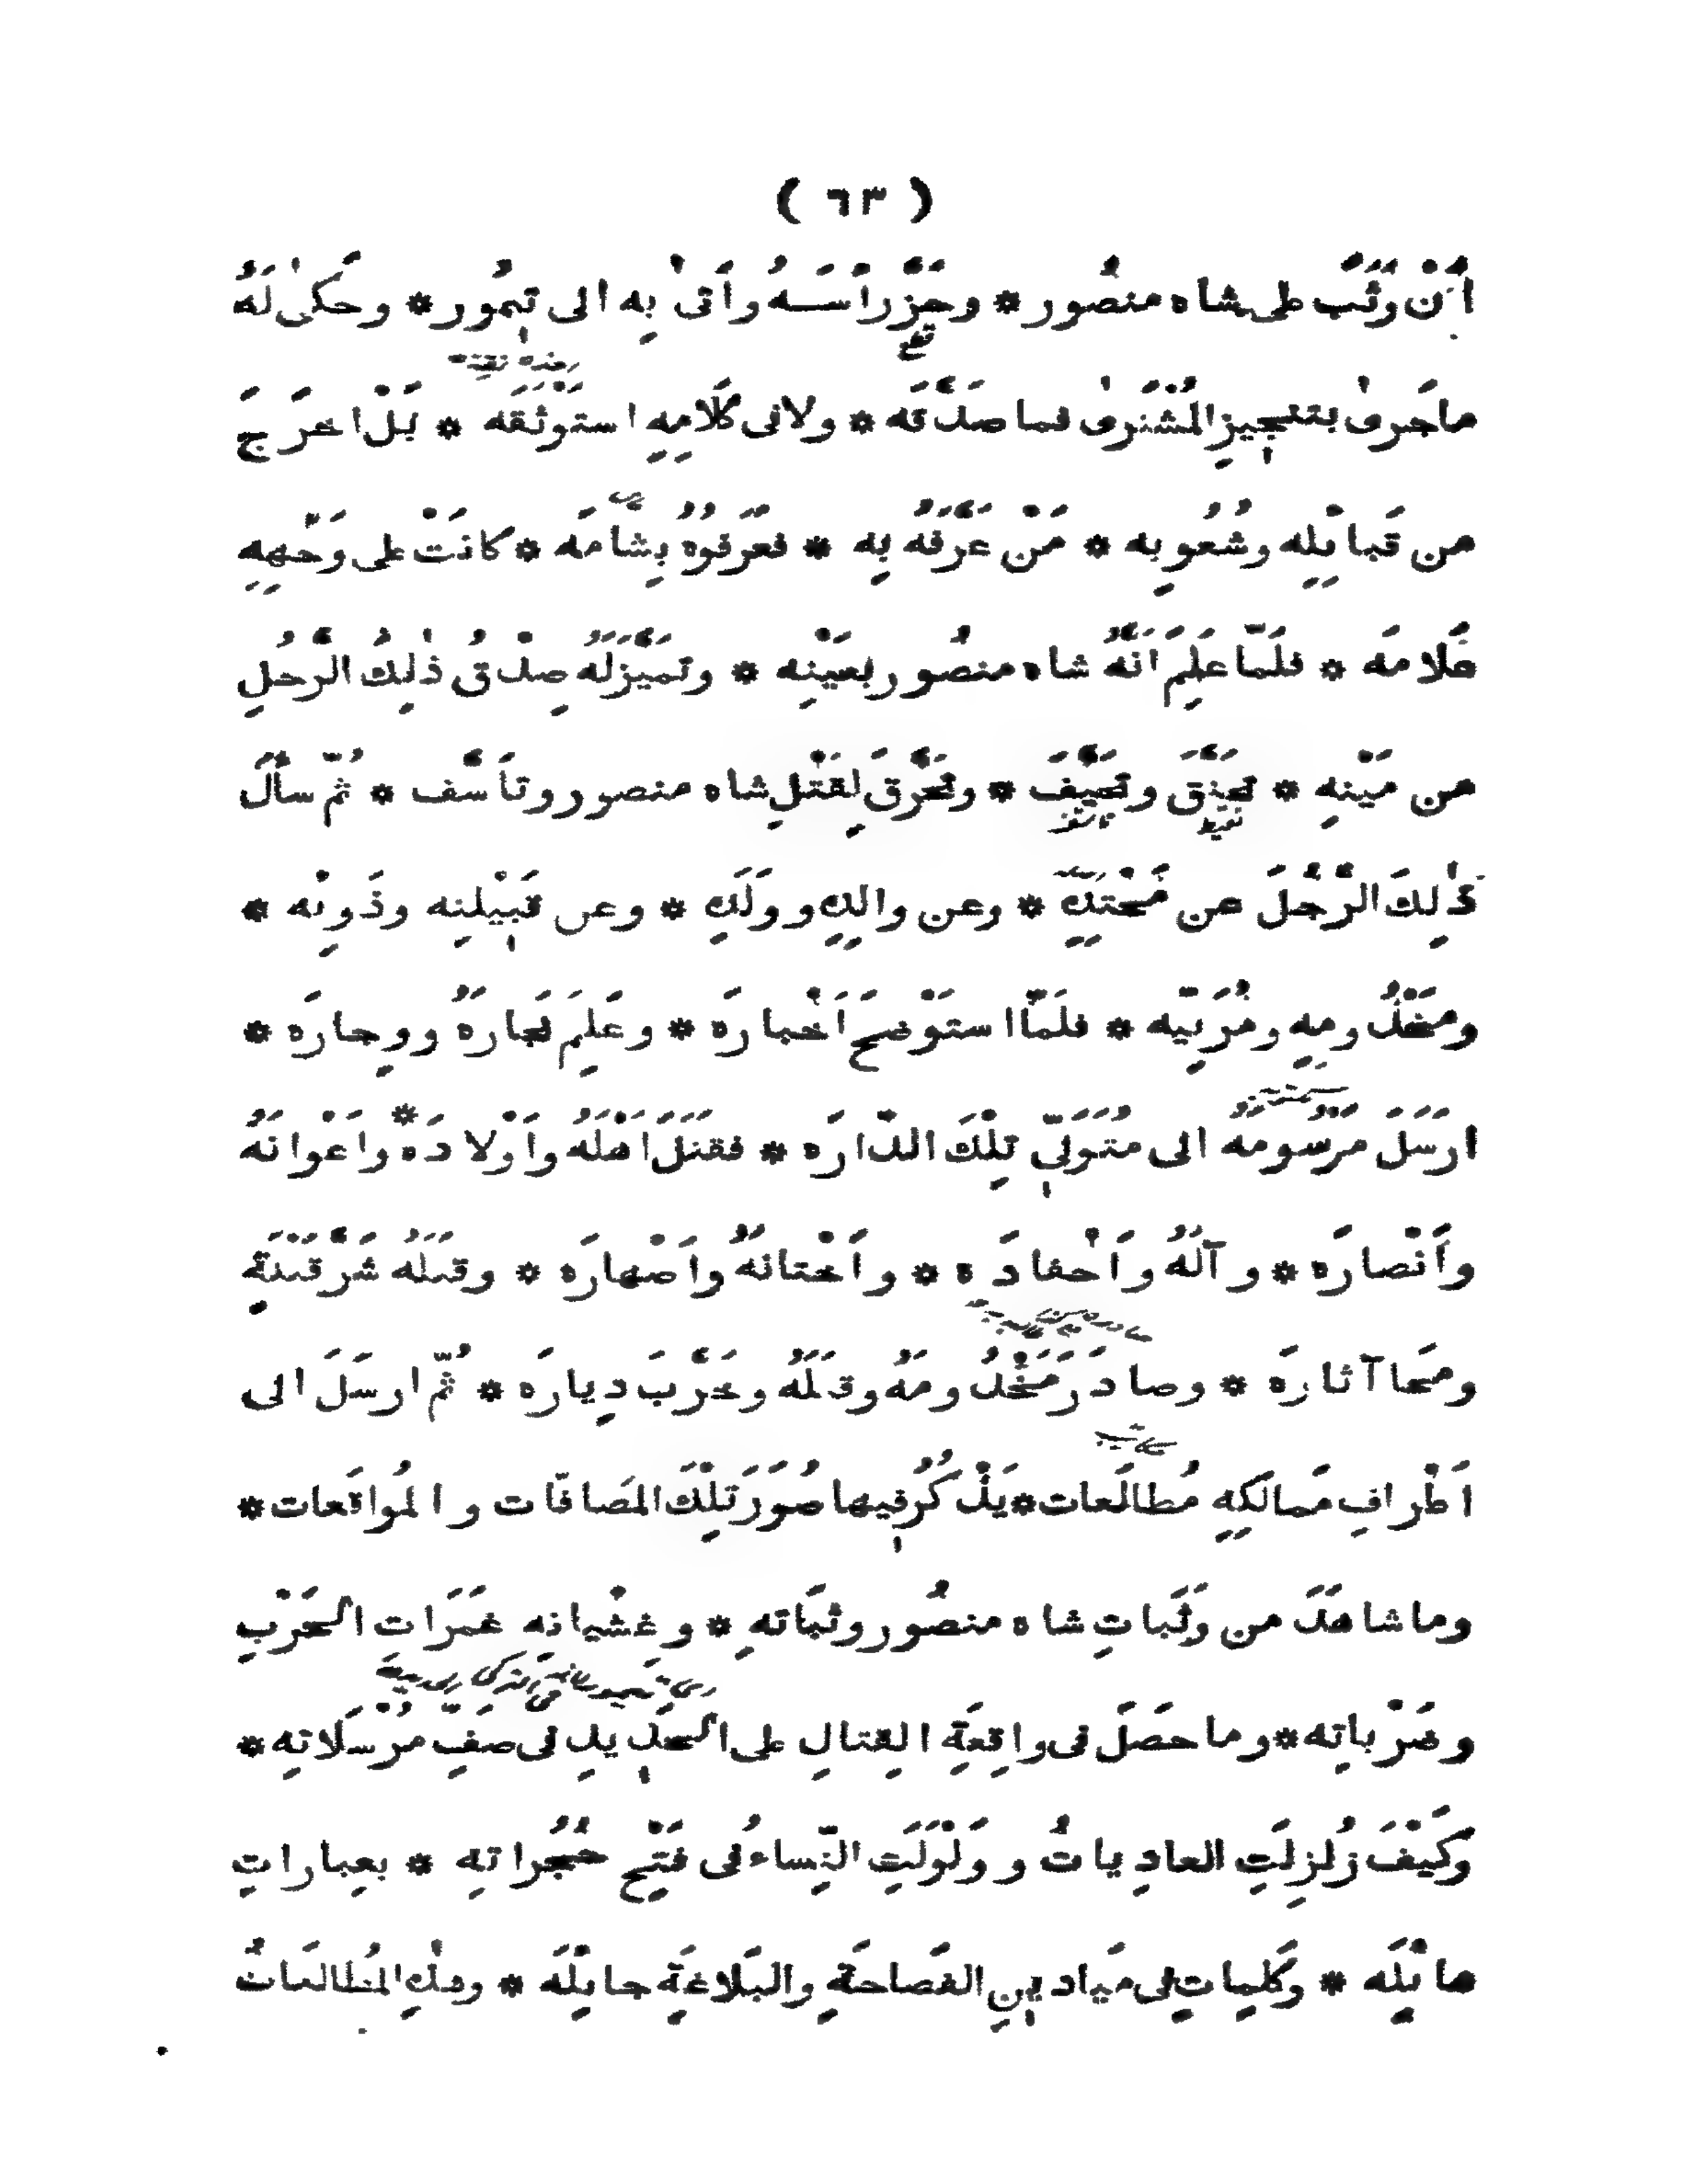 ( ٦٣ )
اَنْ وَثَب على شاه منصُور * وحَزَّ رأسَـهُ واَتٰى بِه الى تِيمُور * وحَكٰى لَهُ
قطع
ماجَرٰى بتنجِيزِ المُشْتَرٰى فما صَدَّقَه * ولا فى كَلامِهِ استَوْثَقَه * بَلْ اخرَجَ
من قَبائِلِه وشُعُوبِه * مَنْ عَرَّفَهُ بِه * فعَرَفوُهُ بِشامَه * كانَتْ على وَجْهِهِ
عَلامَه * فلَمّا عَلِمَ انَّهُ شاه منصُور بعَيْنِه * وتَمَيَّزَ لَهُ صِدْقُ ذٰلِكَ الرَّجُلِ
من مَيْنِه * تَحَنَّقَ وتَحَيَّفَ * وتَحَرَّقَ لِقَتْلِ شاه منصور وتأسَّف * ثُمّ سأَلَ
ذٰلِكَ الرَّجُلَ عن مَحْتِدِهِ * وعن والِدِهِ ووَلَدِهِ * وعن قَبِيلِتِه وذَوِيْه *
ومَخْدُومِهِ ومُرَبِّيْه * فلَمّا استَوْضحَ اَخْبارَه * وعَلِمَ نَجارَهُ ووِجارَه *
ارسَلَ مَرْسُومَهُ الى مُتَوَلِّى تِلْكَ الدّارَه * فقتَلَ اَهْلَهُ واَوْلادَهُ * واَعْوانَهُ
واَنْصارَه * وآلَهُ واَحْفادَه * واَخْتانَهُ واَصْهارَه * وقتلَهُ شَرَّ قتْلَةٍ
ومَحا آثارَه * وصادَرَ مَخْدُومَهُ وقتلَهُ وخَرَّبَ دِيارَه * ثُمّ ارسَلَ الى
اَطْرافِ مَمالكِهِ مُطالَعات * يَذْكُرُ فِيها صُوَرَ تِلْكَ المَصافّات والمُواقَعات *
وما شاهَدَ من وَثَباتِ شاه منصُور وثَباتِه * وغِشْيانِه غَمَرَاتِ الحَرْبِ
وضَرْباتِه * وما حصَلَ فى واقِعَةِ القِتالِ على الحَدِيدِ فى صفِّ مُرْسَلاتِه *
وكَيْفَ زُلزِلَتِ العادِياتُ ووَلْوَلَتِ النِّساءُ فى فَتْحِ حُجُراتِه * بعِباراتٍ
هائِلَه * وكَلِماتٍ فى مَيادِينِ الفَصاحَةِ والبَلاغَةِ جائِلَه * وهٰذِهِ المُطالَعاتُ